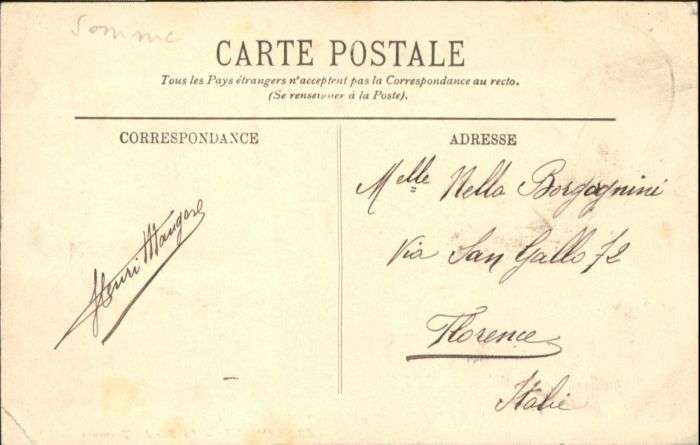 Somme
CARTE POSTALE
Tous les Pays étrangers n'acceptent pas la Correspondance au recto.
(Se renseigner à la Poste).
CORRESPONDANCE
ADRESSE
Melle Nella Borgognini
Via San Gallo 72
Florence
Italie
Henri Maugere